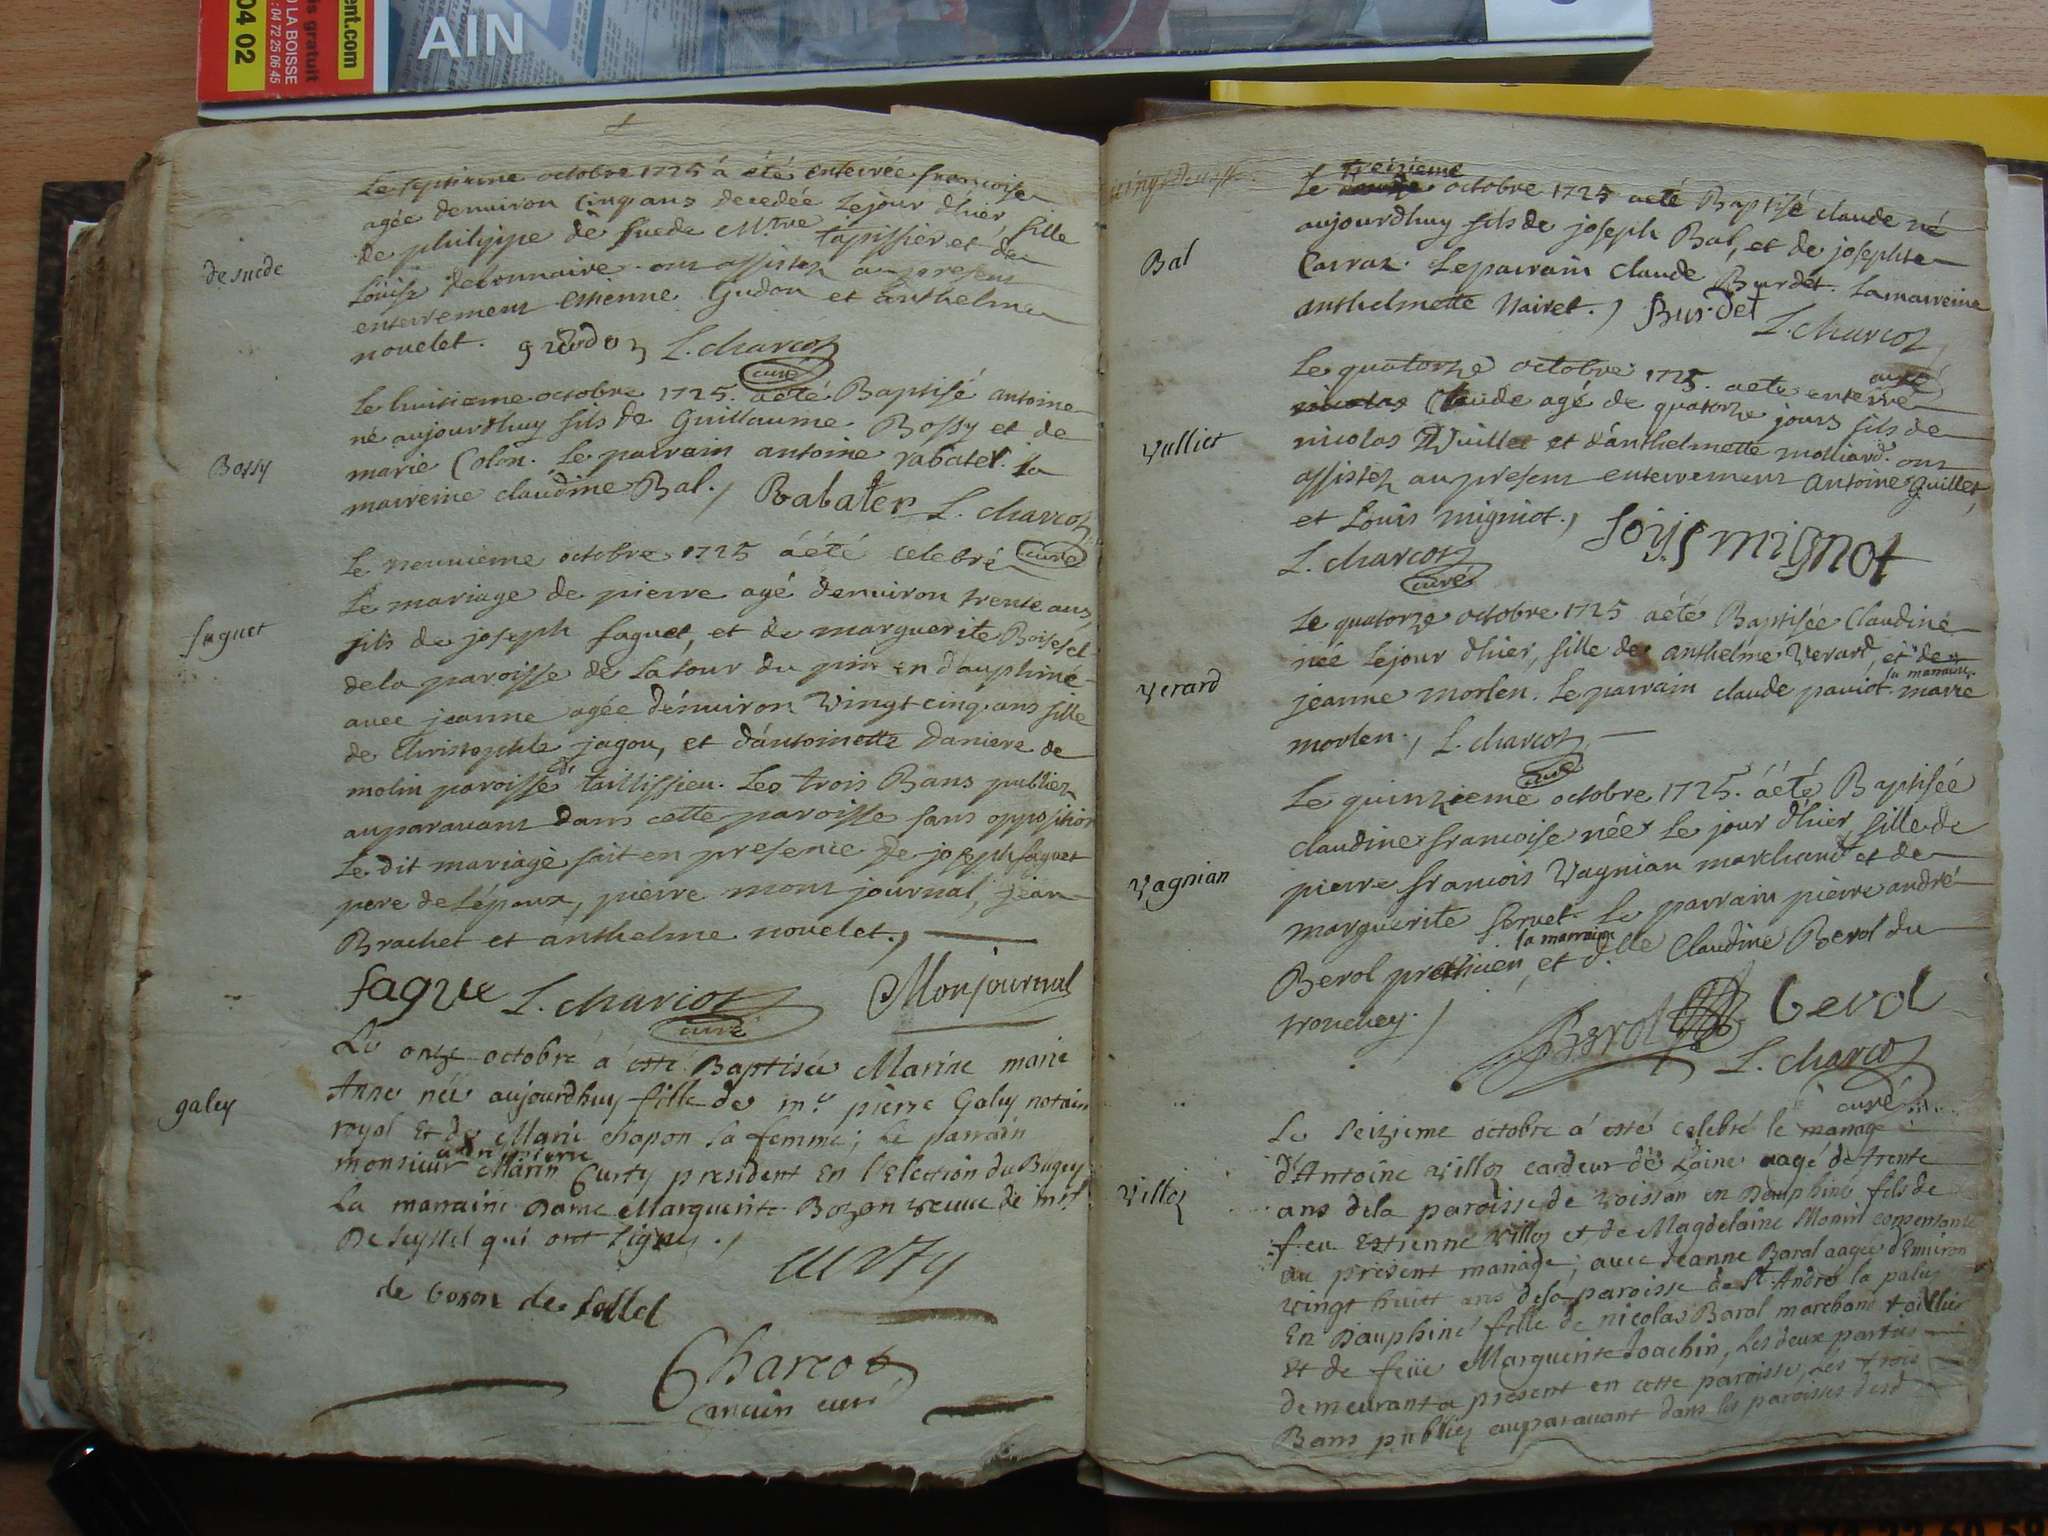 AIN
ent.com
is gratuit
0 LA BOISSE
: 04 72 25 06 45
04 02
Le septieme octobre 1725 á été enterrée francoise
agée denuiron cinq ans decedée le jour d'hier, fille
de philippe de suede Mtre tapissier et de
Louise debonnaire. ont assistez au present
enterrement estienne Gudon et anthelme
nouelet. L. charcot
curé
de suéde
Le huitieme octobre 1725. aeté Baptisé antoine
né aujourdhuy fils de Guillaume Bossy et de
marie Colon. Le parrain antoine rabater. la
marreine claudine Bal./ Rabater L. charcot
curé
Bossy
Le neuuieme octobre 1725 áété celebré
Le mariage de pierre agé denuiron trente ans,
fils de joseph faguet, et de marguerite
dela paroisse de La tour du pin en dauphiné
auec jeanne agée d'énuiron vingt cinq ans fille
de Christophle jagou, et d'ántoinette daniere de
molin paroisse de taillissieu. Les trois Bans publiez
auparauant dans cette paroisse sans opposition
Le dit mariage fait en présence de joseph faguet
pere de l'époux, pierre mont journal, jean
Brachet et anthelme nouelet./
faguet
fague L. charcot Monjournal
curé
Le onze octobre á esté Baptisée Marine marie
Anne née aujourdhuy fille de mr. pierre Galey notaire
royal Et de Marie chapon sa femme; Le parrain
monsieur Marin Curty president En l'Election du Bugey
La marraine Dame Marguerite Bozon veuue de
De seyssel qui ont signez ./
galey
curty
de boson de
Charcot
ancien curé
treizieme
Le octobre 1725 aeté Baptisé claude né
aujourdhuy fils de joseph Bal, et de josephte
Carraz. Le parrain claude Burdet. la marreine
anthelmette Nairet./ Burdet
L. charcot
curé
Bal
Le quatorze octobre 1725. aeté enterré
Claude agé de quatorze jours fils de
nicolas Vuillet et d'ánthelmette molliard. ont
assistez au present enterrement antoine Guillet,
et Louis migniot./ loijs mignot
L. charcot
curé
Vulliet
Le quatorze octobre 1725 aété Baptisée Claudine
née le jour d'hier, fille de anthelme Verard, et de
jeanne morlen. Le parrain claude pauiot. la marraine marie
morlen./ L. charcot
curé
Verard
Le quinzieme octobre 1725. áété Baptisée
claudine francoise née le jour d'hier, fille de
pierre francois Vagnian marchand et de
marguerite seruet. Le parrain pierre andré
Berol praticien, et la marraine dlle Claudine Berol du
trouchey./
Vagnian
Berol berol
L. charcot
curé
Le seizieme octobre á esté celebré le mariage
d'Antoine villoz cardeur de laine aagé de trente
ans dela paroisse de voissan en Dauphiné fils de
feu Estienne villoz et de Magdelaine Monin consentante
au present mariage; auec Jeanne Baral aagée d'Enuiron
vingt huitt ans dela paroisse de St. André la palu
En Dauphiné fille de nicolas Baral marchand
Et de feüe Marguerite Joachin, Les deux parties
demeurant a present en cette paroisse, Les trois
Bans publiez auparauant dans les paroisses desd
Villoz